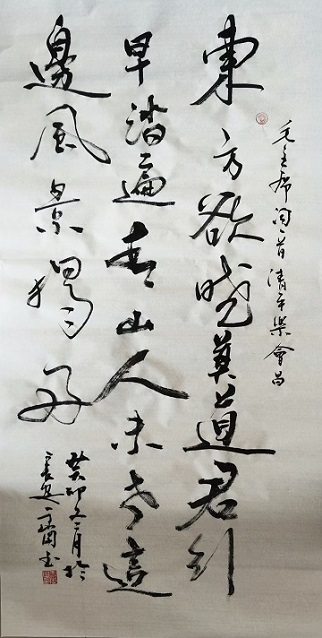 毛主席詞一首清平樂會昌
東方欲曉莫道君行
早踏遍青山人未老這
邊風景獨好
癸卯又二月於
书